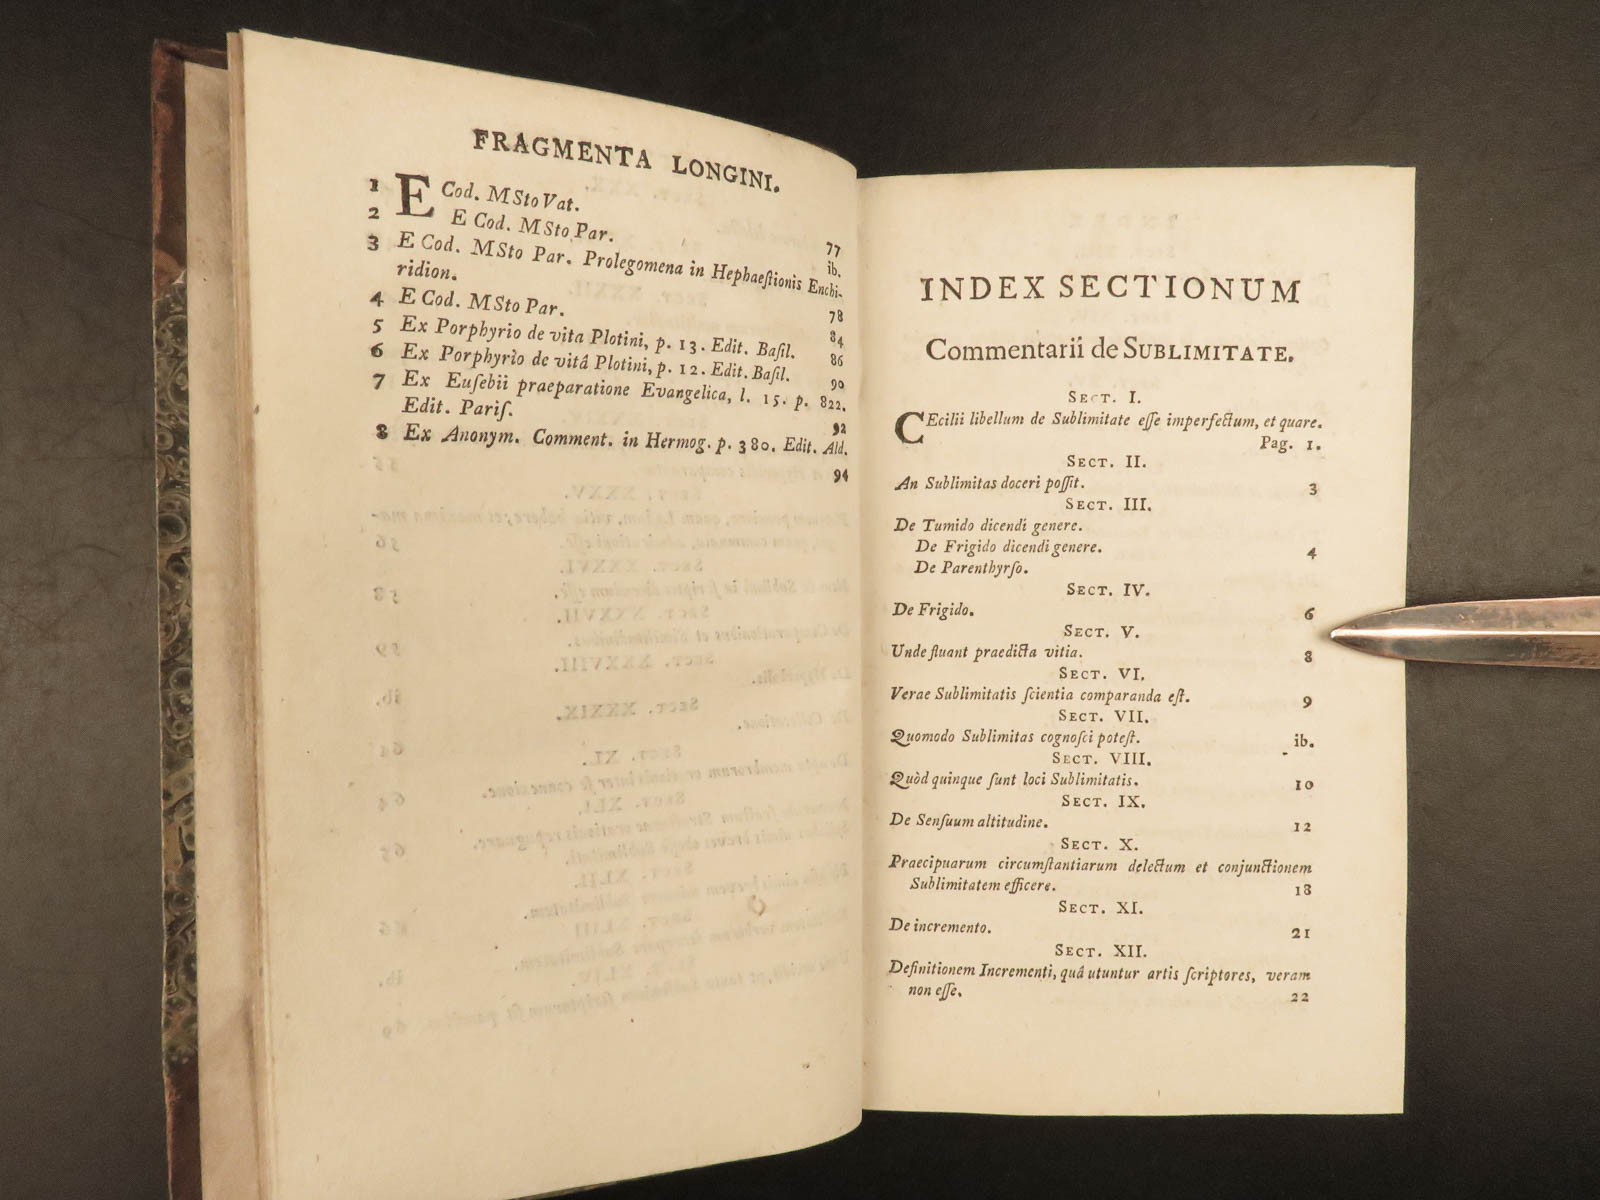 FRAGMENTA LONGINI.
1 E Cod. MSto Vat.
77
2 E Cod. MSto Par.
ib.
3 E Cod. MSto Par. Prolegomena in Hephaestionis Enchi-
ridion.
78
4 E Cod. MSto Par.
84
5 Ex Porphyrio de vita Plotini, p. 13. Edit. Basil.
86
6 Ex Porphyrio de vitâ Plotini, p. 12. Edit. Basil.
90
7 Ex Eusebii praeparatione Evangelica, l. 15. p. 822.
Edit. Paris.
92
8 Ex Anonym. Comment. in Hermog. p. 380. Edit. Ald.
94
INDEX SECTIONUM
Commentarii de SUBLIMITATE.
SECT. I.
CEcilii libellum de Sublimitate esse imperfectum, et quare.
Pag. 1.
SECT. II.
An Sublimitas doceri possit. 3
SECT. III.
De Tumido dicendi genere.
De Frigido dicendi genere. 4
De Parenthyrso.
SECT. IV.
De Frigido. 6
SECT. V.
Unde fluant praedicta vitia. 8
SECT. VI.
Verae Sublimitatis scientia comparanda est. 9
SECT. VII.
Quomodo Sublimitas cognosci potest. ib.
SECT. VIII.
Quòd quinque sunt loci Sublimitatis. 10
SECT. IX.
De Sensuum altitudine. 12
SECT. X.
Praecipuarum circumstantiarum delectum et conjunctionem
Sublimitatem efficere. 18
SECT. XI.
De incremento. 21
SECT. XII.
Definitionem Incrementi, quâ utuntur artis scriptores, veram
non esse. 22